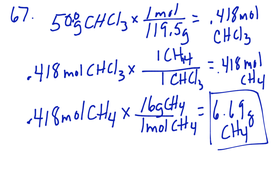 67. 50.0g CHCl₃ × 1mol / 119.5g = .418mol CHCl₃
.418mol CHCl₃ × 1CH₄ / 1CHCl₃ = .418mol CH₄
.418mol CH₄ × 16gCH₄ / 1molCH₄ = 6.69g CH₄